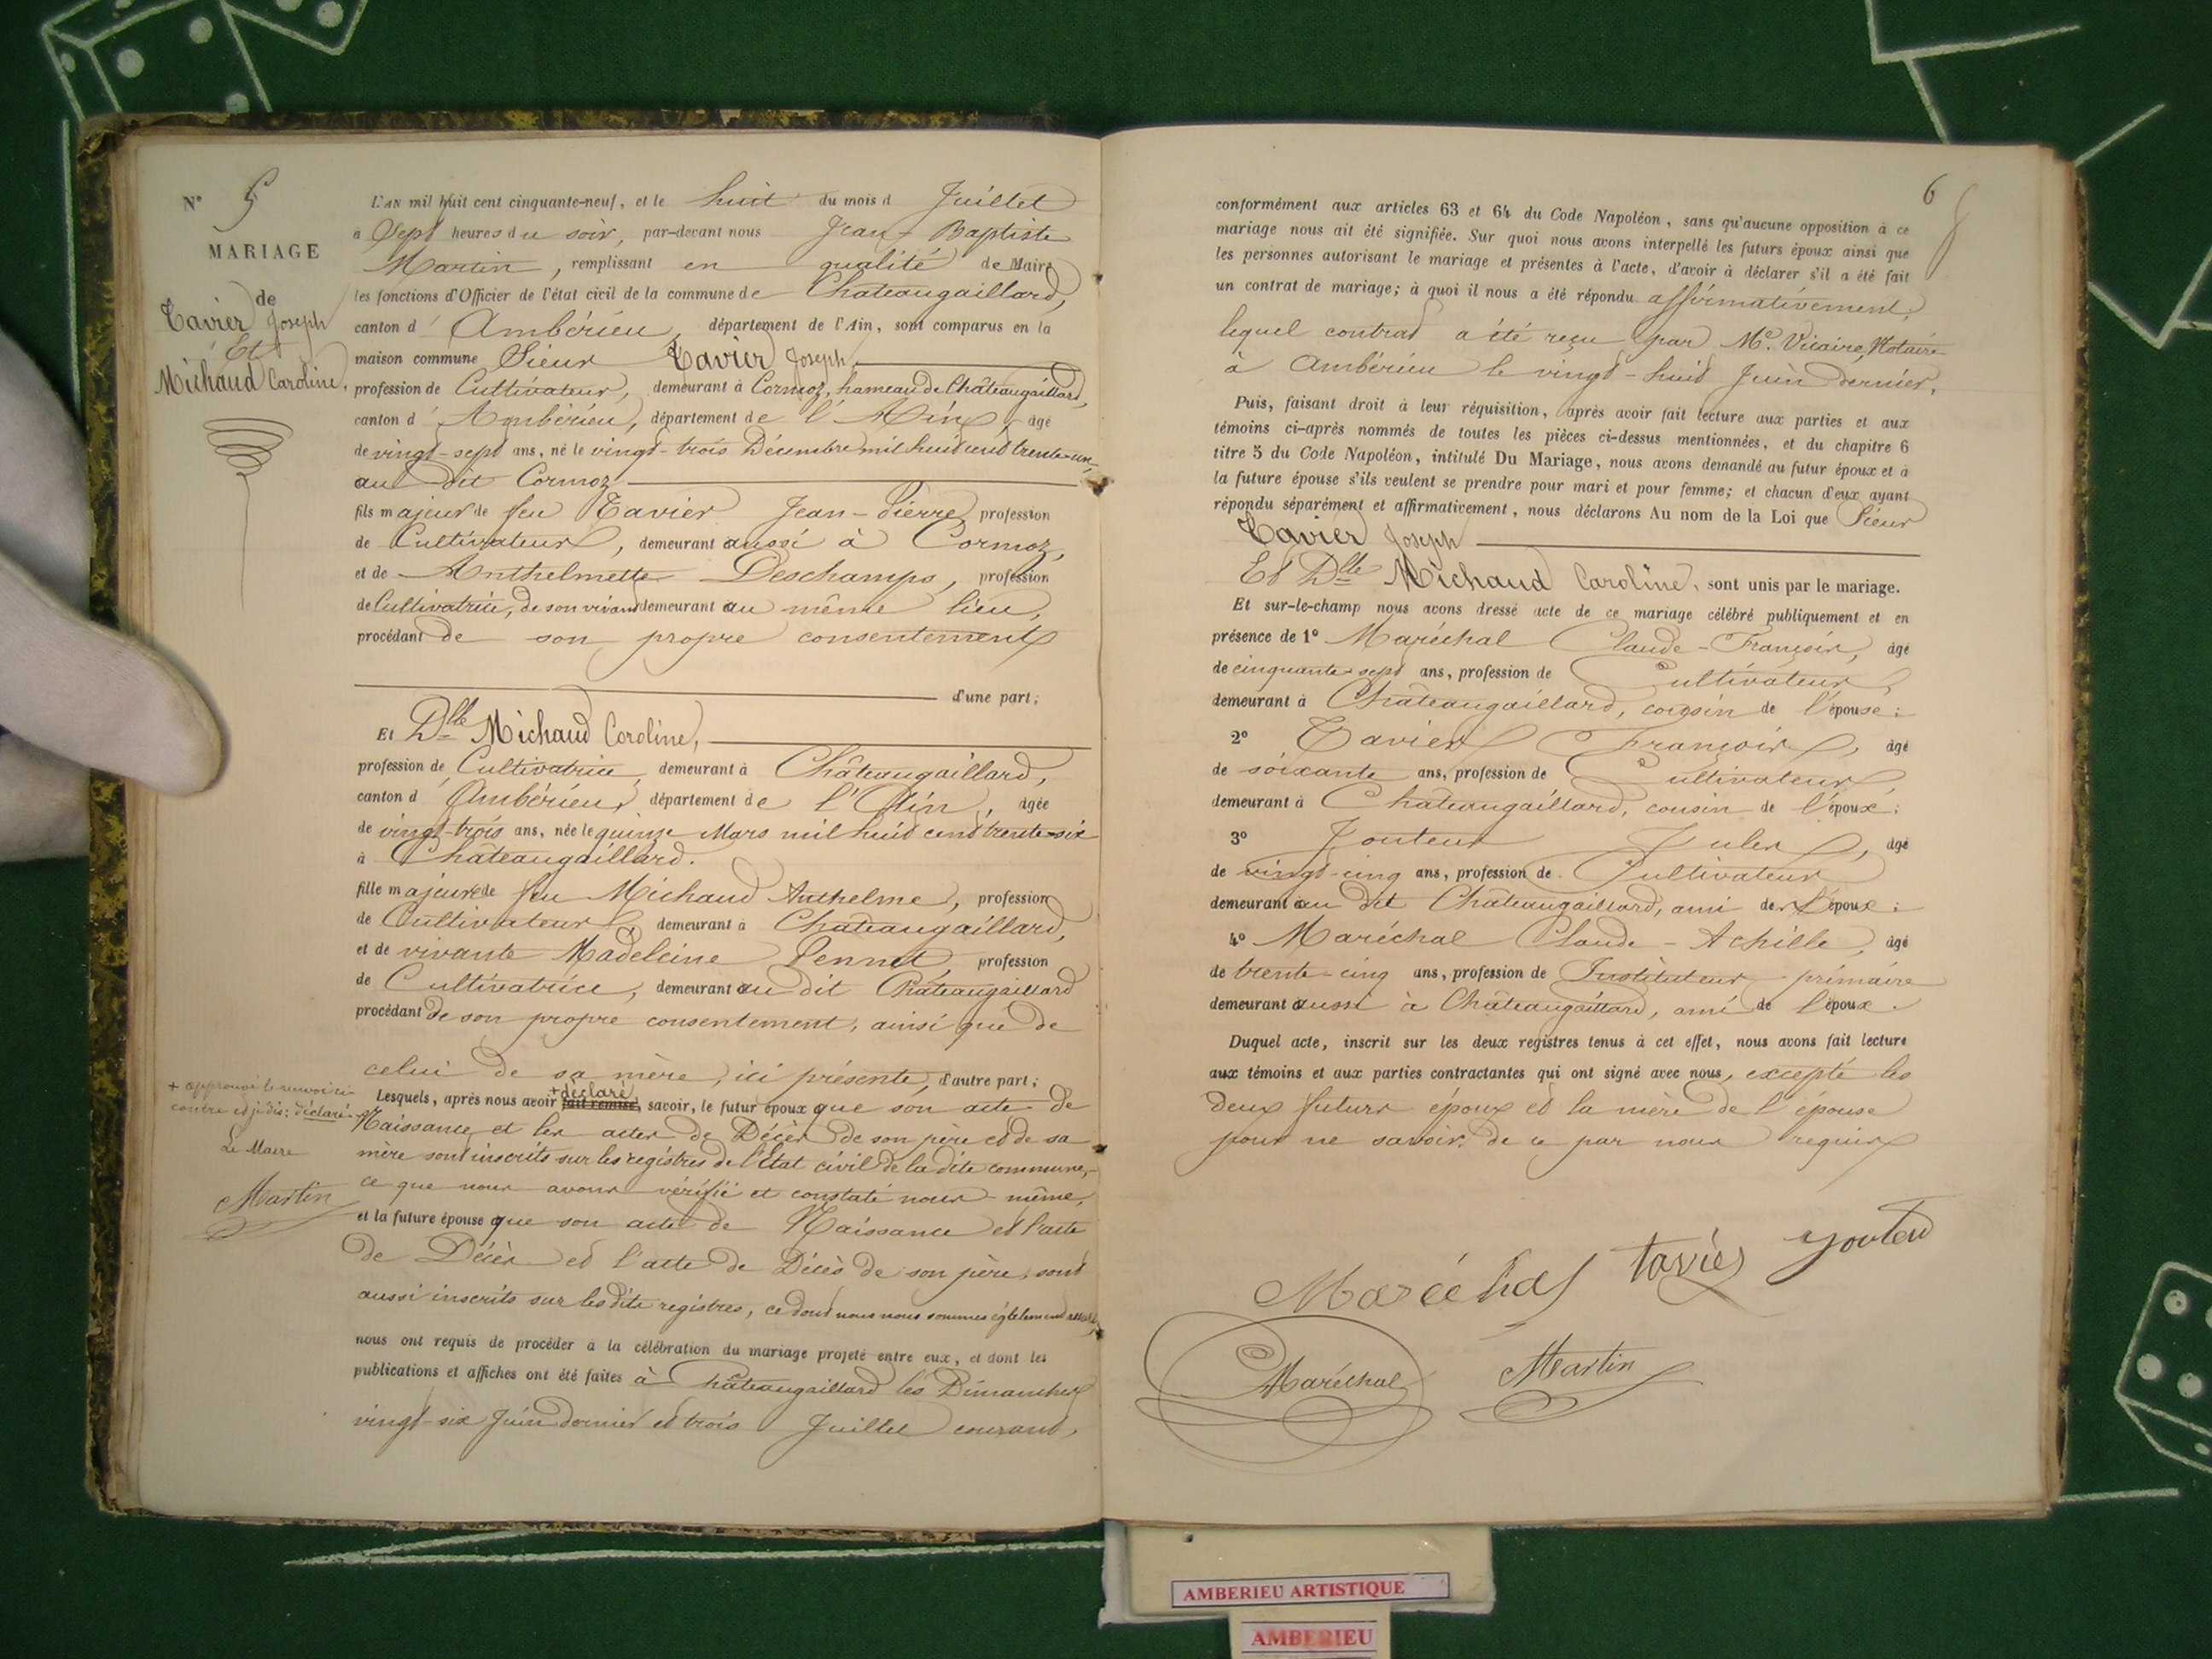 N° 5
MARIAGE
de
Tavier Joseph
Et
Michaud Caroline.
L'AN mil huit cent cinquante-neuf, et le huit du mois d Juillet
à Sept heures du soir, par-devant nous Jean-Baptiste
Martin, remplissant en qualité de Maire
les fonctions d'Officier de l'état civil de la commune de Chateaugaillard,
canton d' Ambérieu, département de l'Ain, sont comparus en la
maison commune Sieur Tavier Joseph
profession de Cultivateur, demeurant à Cormoz, hameau de Châteaugaillard,
canton d' Ambérieu, département de l'Ain, âgé
de vingt-sept ans, né le vingt-trois Décembre mil huit cent trente-un,
au dit Cormoz
fils majeur de feu Tavier Jean-Pierre, profession
de Cultivateur, demeurant aussi à Cormoz,
et de Anthelmette Deschamps, profession
de Cultivatrice, de son vivant demeurant au même lieu,
procédant de son propre consentement
d'une part;
Et Dlle Michaud Caroline,
profession de Cultivatrice, demeurant à Châteaugaillard,
canton d' Ambérieu, département de l'Ain, âgée
de vingt-trois ans, née le quinze Mars mil huit cent trente-six
à Châteaugaillard.
fille majeure de feu Michaud Anthelme, profession
de Cultivateur, demeurant à Châteaugaillard,
et de vivante Madeleine Pennet, profession
de Cultivatrice, demeurant au dit Châteaugaillard
procédant de son propre consentement, ainsi que de
celui de sa mère, ici présente, d'autre part;
Lesquels, après nous avoir fait remise, + déclaré savoir, le futur époux que son acte de
Naissance et les actes de Décès de son père et de sa
mère sont inscrits sur les registres de l'Etat civil de la dite commune,
ce que nous avons vérifié et constaté nous-même,
et la future épouse que son acte de Naissance et l'acte
de Décès et l'acte de Décès de son père, sont
aussi inscrits sur les dits registres, ce dont nous nous sommes également
nous ont requis de procéder à la célébration du mariage projeté entre eux, et dont les
publications et affiches ont été faites à Châteaugaillard les Dimanches
vingt-six Juin dernier et trois Juillet courant,
+ approuvé le renvoi ci-
contre et je dis: déclaré.
Le Maire
Martin
6
conformément aux articles 63 et 64 du Code Napoléon, sans qu'aucune opposition à ce
mariage nous ait été signifiée. Sur quoi nous avons interpellé les futurs époux ainsi que
les personnes autorisant le mariage et présentes à l'acte, d'avoir à déclarer s'il a été fait
un contrat de mariage; à quoi il nous a été répondu affirmativement,
lequel contrat a été reçu par Me. Vicaire, Notaire
à Ambérieu le vingt-huit Juin dernier,
Puis, faisant droit à leur réquisition, après avoir fait lecture aux parties et aux
témoins ci-après nommés de toutes les pièces ci-dessus mentionnées, et du chapitre 6
titre 5 du Code Napoléon, intitulé Du Mariage, nous avons demandé au futur époux et à
la future épouse s'ils veulent se prendre pour mari et pour femme; et chacun d'eux ayant
répondu séparément et affirmativement, nous déclarons Au nom de la Loi que Sieur
Tavier Joseph
Et Dlle Michaud Caroline, sont unis par le mariage.
Et sur-le-champ nous avons dressé acte de ce mariage célébré publiquement et en
présence de 1° Maréchal Claude-François, âgé
de cinquante-sept ans, profession de Cultivateur,
demeurant à Châteaugaillard, cousin de l'épouse;
2° Tavier François, âgé
de soixante ans, profession de Cultivateur,
demeurant à Châteaugaillard, cousin de l'époux;
3° Jouteur Jules, âgé
de vingt-cinq ans, profession de Cultivateur
demeurant au dit Châteaugaillard, ami de l'époux;
4° Maréchal Claude-Achille, âgé
de trente-cinq ans, profession de Instituteur primaire
demeurant aussi à Châteaugaillard, ami de l'époux.
Duquel acte, inscrit sur les deux registres tenus à cet effet, nous avons fait lecture
aux témoins et aux parties contractantes qui ont signé avec nous, excepté les
deux futurs époux et la mère de l'épouse
pour ne savoir, de ce par nous requis
Maréchal tavier
Maréchal Martin
AMBERIEU ARTISTIQUE
AMBERIEU